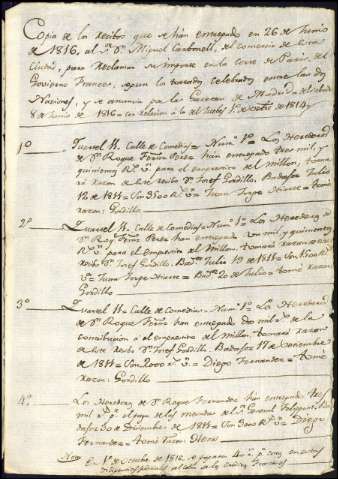 Copia de los recibos que se han entregado en 26 de Junio
de 1816, al Sr. Dn. Miguel Carbonell, del comercio de
para reclamar su importe en la corte de Paris, del
Govierno Frances, segun los tratados celebrados entre las dos
Naciones, y se anuncia pr. la Gaceta de Madrid del Sabado
8 de Junio de 1816 con relacion a la del Sabado 1º de Octre. de 1814
1º Quartel 11. Calle de Comedias = Num.º 1º = Los Herederos
de Dn. Roque Feros Perez han entregado tres mil, y
quinientos Rs. Vn. para el emprestito del millon, tomará
razon de este recibo Dn. Josef Gordillo. Badajoz Julio
12 de 1811 = Son 3500 Rs. Vn. = Juan Jorge = tomé
razon: Gordillo
2º Quartel 11. Calle de Comedias = Num.º 1º = Los Herederos
de Dn. Roq. Feros Perez han entregado un mil y quinientos
Rs. Vn. para el emprestito del Millon. tomará razon de este
recibo Dn. Josef Gordillo. Badz. Julio 19 de 1811 = Son 1500 Rs.
Vn. = Juan Jorge = Badz. 20 de Julio = tomé razon
Gordillo
3º Quartel 11. Calle de Comedias = Num.º 1º = La Heredera
de Dn. Roque Feros han entregado dos mil rs. de la
contribucion al emprestito del millon. tomará razon
de este recibo Dn. Josef Gordillo. Badajoz 17 de Noviembre
de 1811 = Son 2000 rs. Vn. = Diego Fernandez = tomé
razon: Gordillo
4º Los Herederos de Dn. Roque Fernandez han entregado tres
mil rs. Vn. pr. el cupo de los muebles del Sr. General
30 de Diciembre de 1811 = Son 3000 Rs. Vn. = Diego
Fernandez = tomé razon:
Nota En 1º de Octubre de 1816 se pagaron